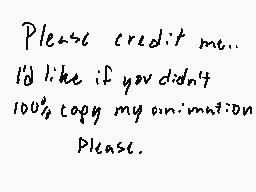 Please credit me..
I'd like if you didn't
100% copy my animation
Please.